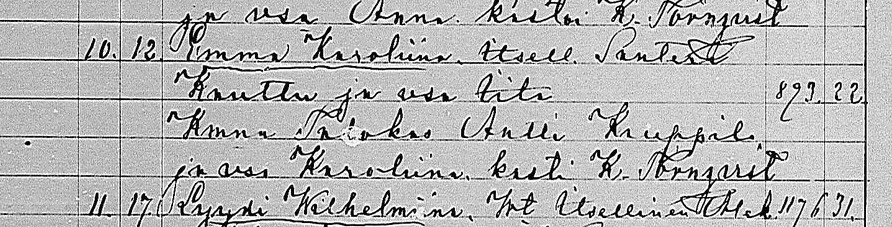 ja vsa Anna. kastoi K. Törnqvist
10. 12. Emma Karoliina. Itsell. Santeri
Knuttu ja vsa Iita 893. 22.
Kmna Talokas Antti Kruppil.
ja vsa Karoliina. kasti K. Törnqvist
11. 17. Lyydi Wilhelmina. Vvt Itsellinen 1176 31.